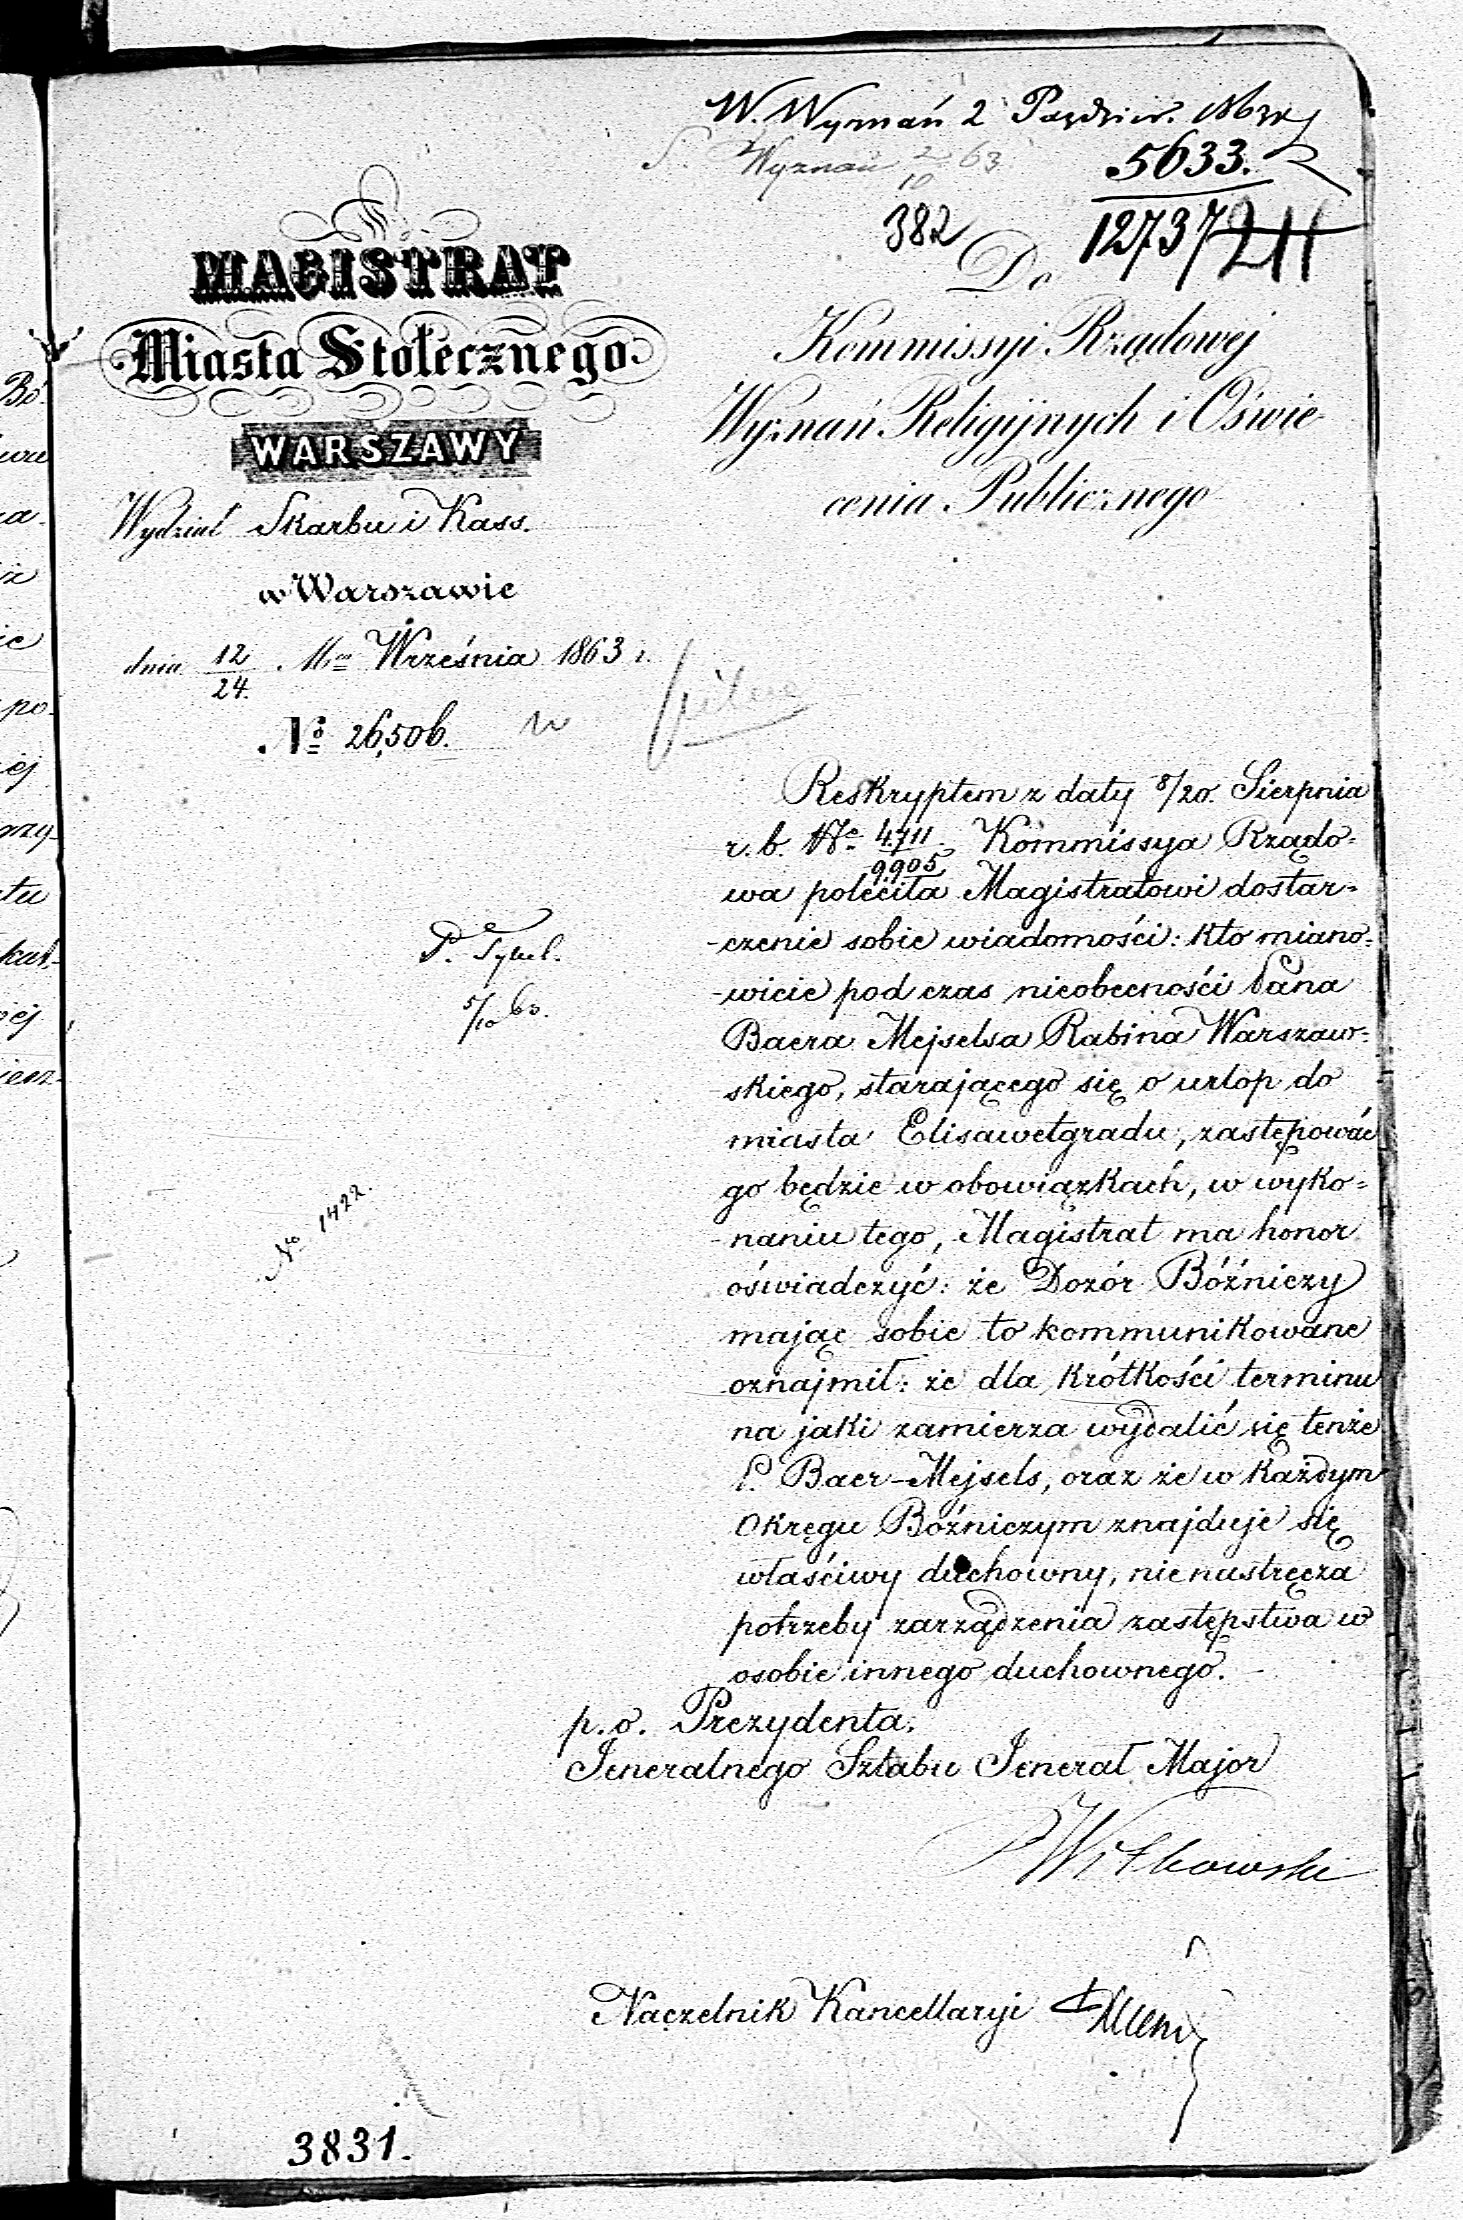 W. Wyznań 2 Paździer. 1863 r
Wyznań 2/10 63
5633.
12737
382
211
MAGISTRAT
Miasta Stołecznego
WARSZAWY
Wydział Skarbu i Kass.
w Warszawie
dnia 12/24. Mca Września 1863 r.
No 26,506.
Do
Kommissyi Rządowej
Wyznań Religijnych i Oświe
cenia Publicznego
Reskryptem z daty 8/20. Sierpnia
r. b. No 4711/9905 Kommissya Rządo=
wa poleciła Magistratowi dostar=
-czenie sobie wiadomości: kto miano=
-wicie pod czas nieobecności Pana
Baera Mejselsa Rabina Warszaw=
-skiego, starającego się o urlop do
miasta Elisawetgradu, zastępować
go będzie w obowiązkach, w wyko=
-naniu tego, Magistrat ma honor
oświadczyć: że Dozór Bóźniczy
mając sobie to kommunikowane
oznajmił: że dla krótkości terminu
na jaki zamierza wydalić się tenże
P. Baer-Mejsels, oraz że w każdym
Okręgu Bóźniczym znajduje się
właściwy duchowny, nienastręcza
potrzeby zarządzenia zastępstwa w
osobie innego duchownego.
P.
5/10 63.
No 1422.
p. o. Prezydenta,
Jeneralnego Sztabu Jenerał Major
Witkowski
Naczelnik Kancellaryi
3831.